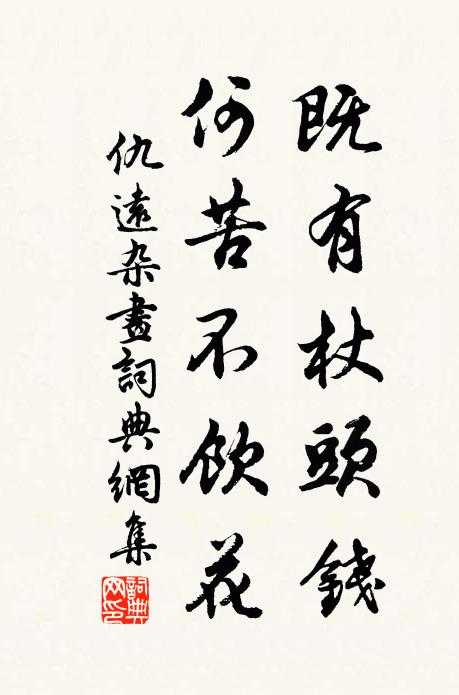 既有杖頭錢
何苦不飲花
仇遠杂畫詞典網集
詞典网印